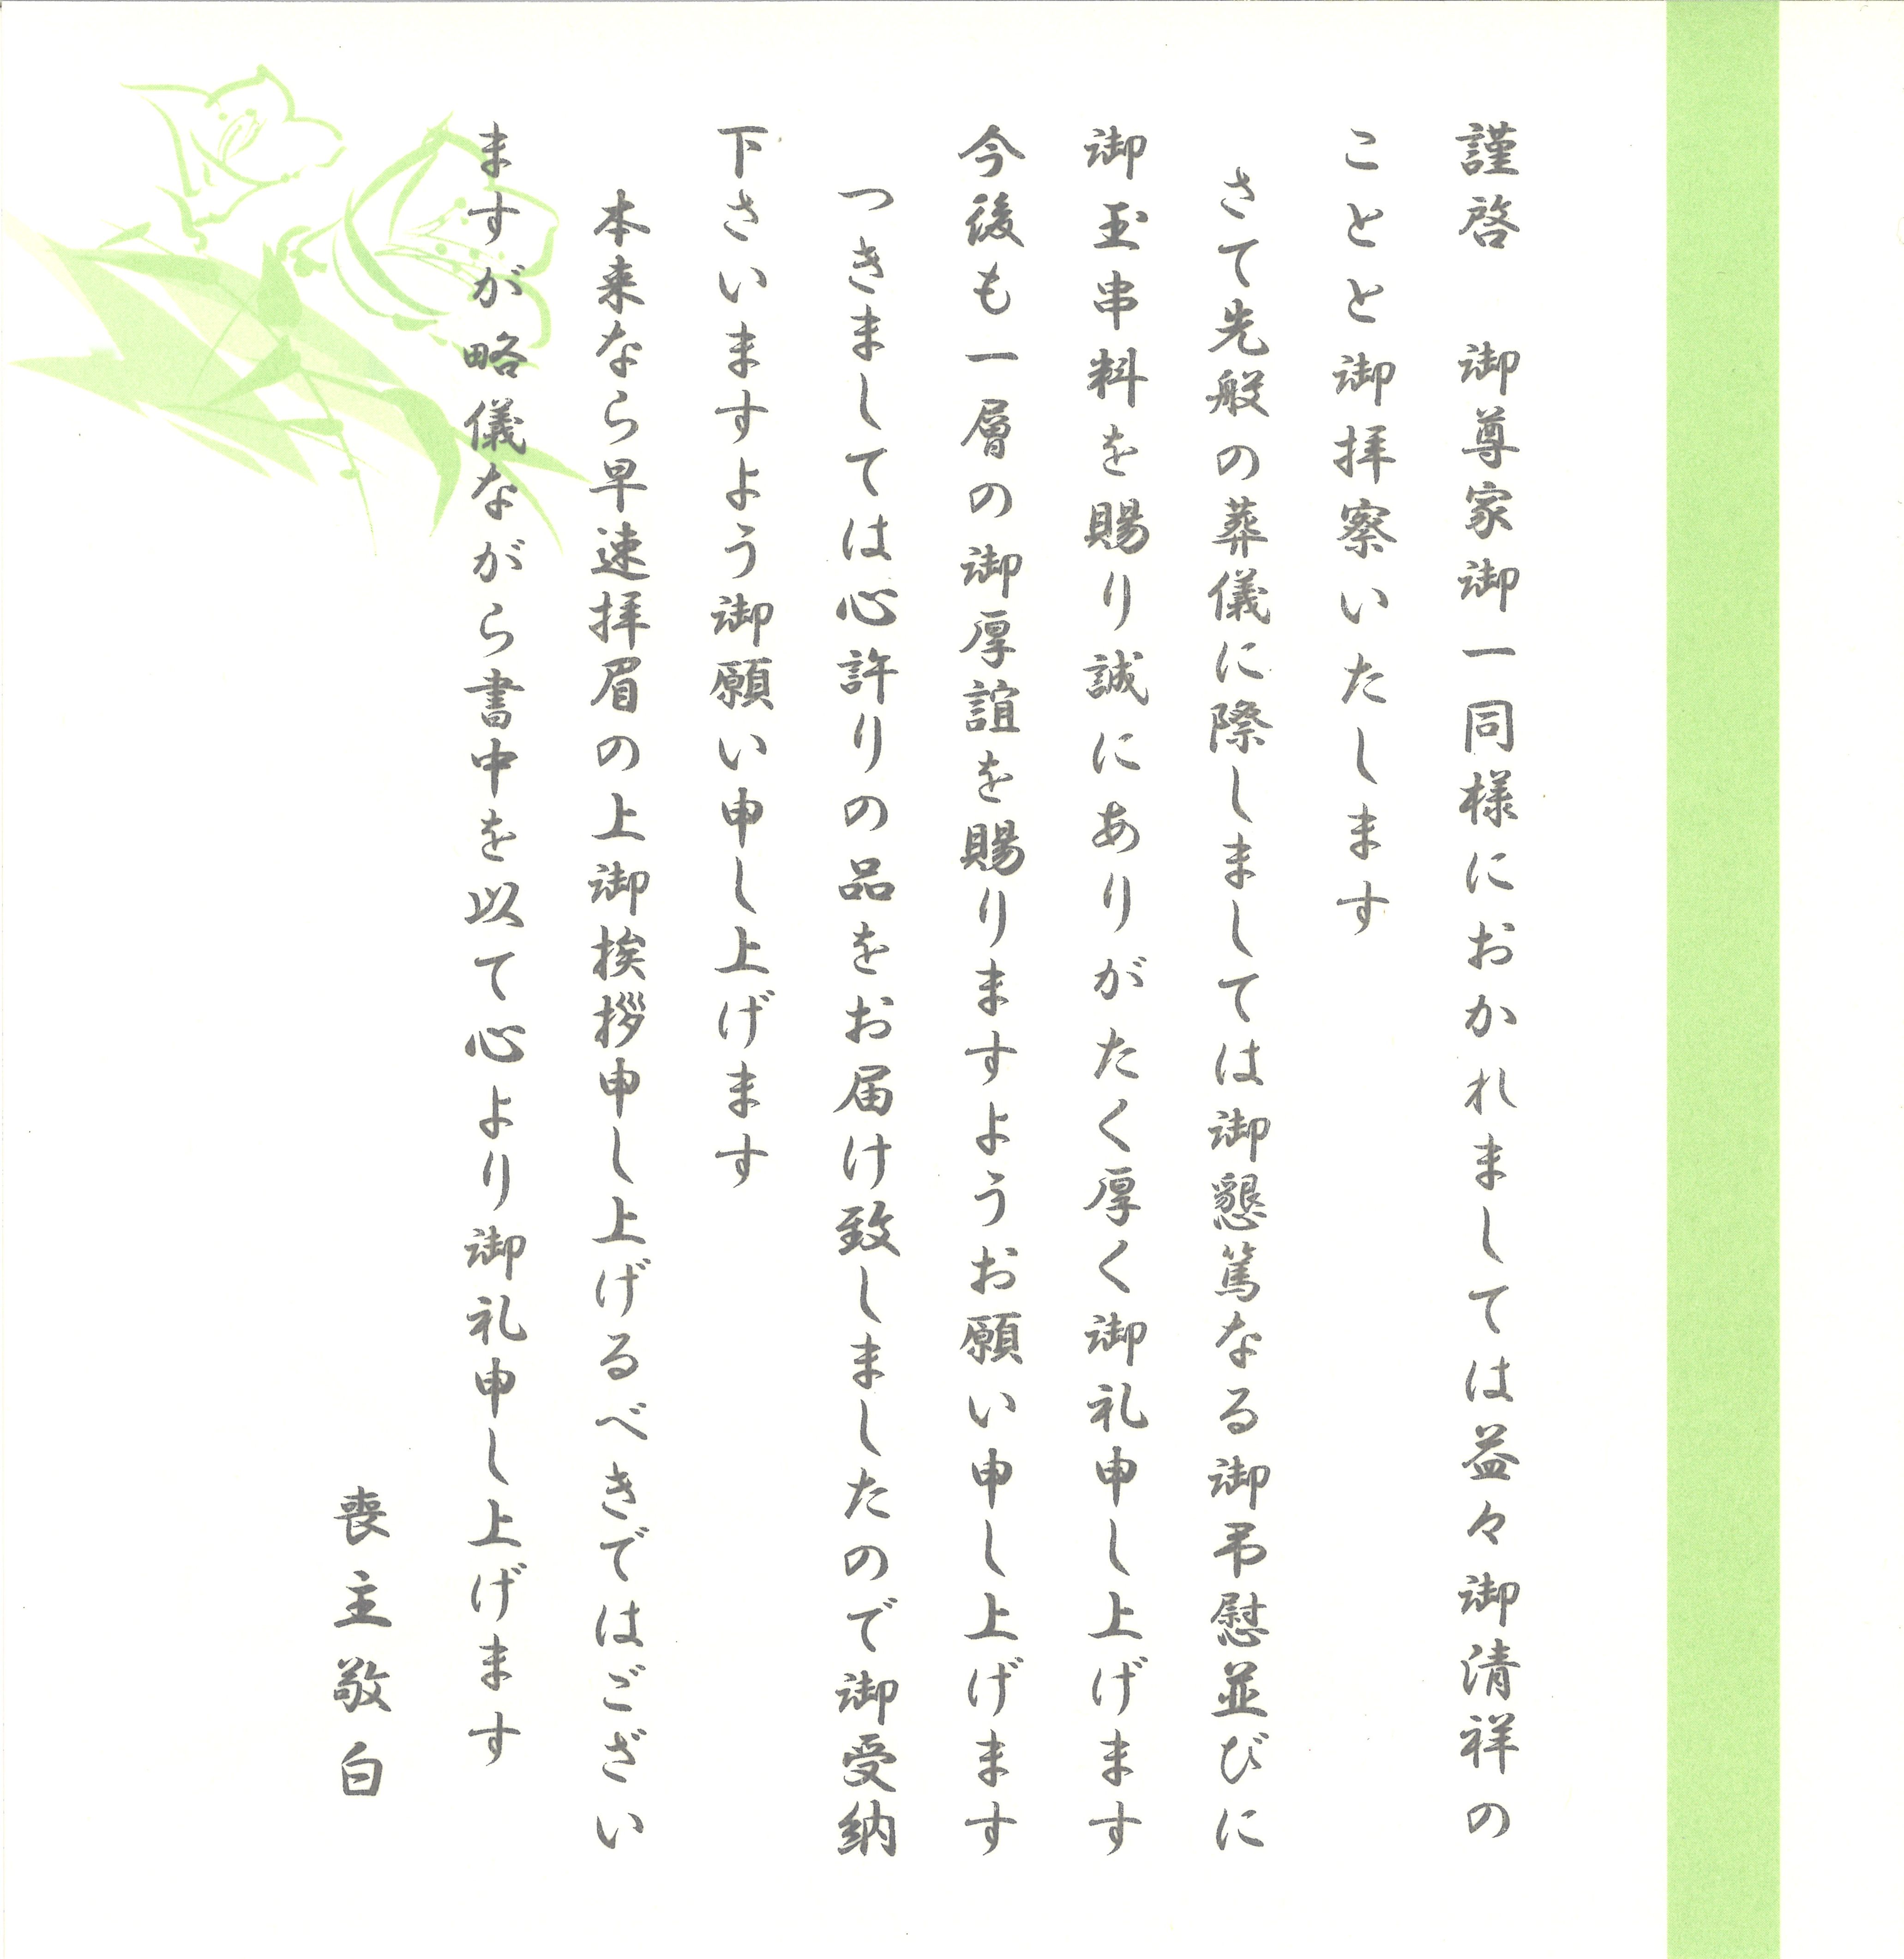 謹啓　御尊家御一同様におかれましては益々御清祥の
ことと御拝察いたします
さて先般の葬儀に際しましては御懇篤なる御弔慰並びに
御玉串料を賜り誠にありがたく厚く御礼申し上げます
今後も一層の御厚誼を賜りますようお願い申し上げます
つきましては心許りの品をお届け致しましたので御受納
下さいますよう御願い申し上げます
本来なら早速拝眉の上御挨拶申し上げるべきではござい
ますが略儀ながら書中を以て心より御礼申し上げます
喪主敬白